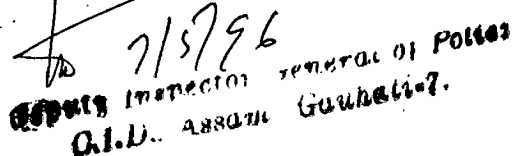 7/5/96
Deputy Inspector General of Police
C.I.D. Assam Gauhati-7.